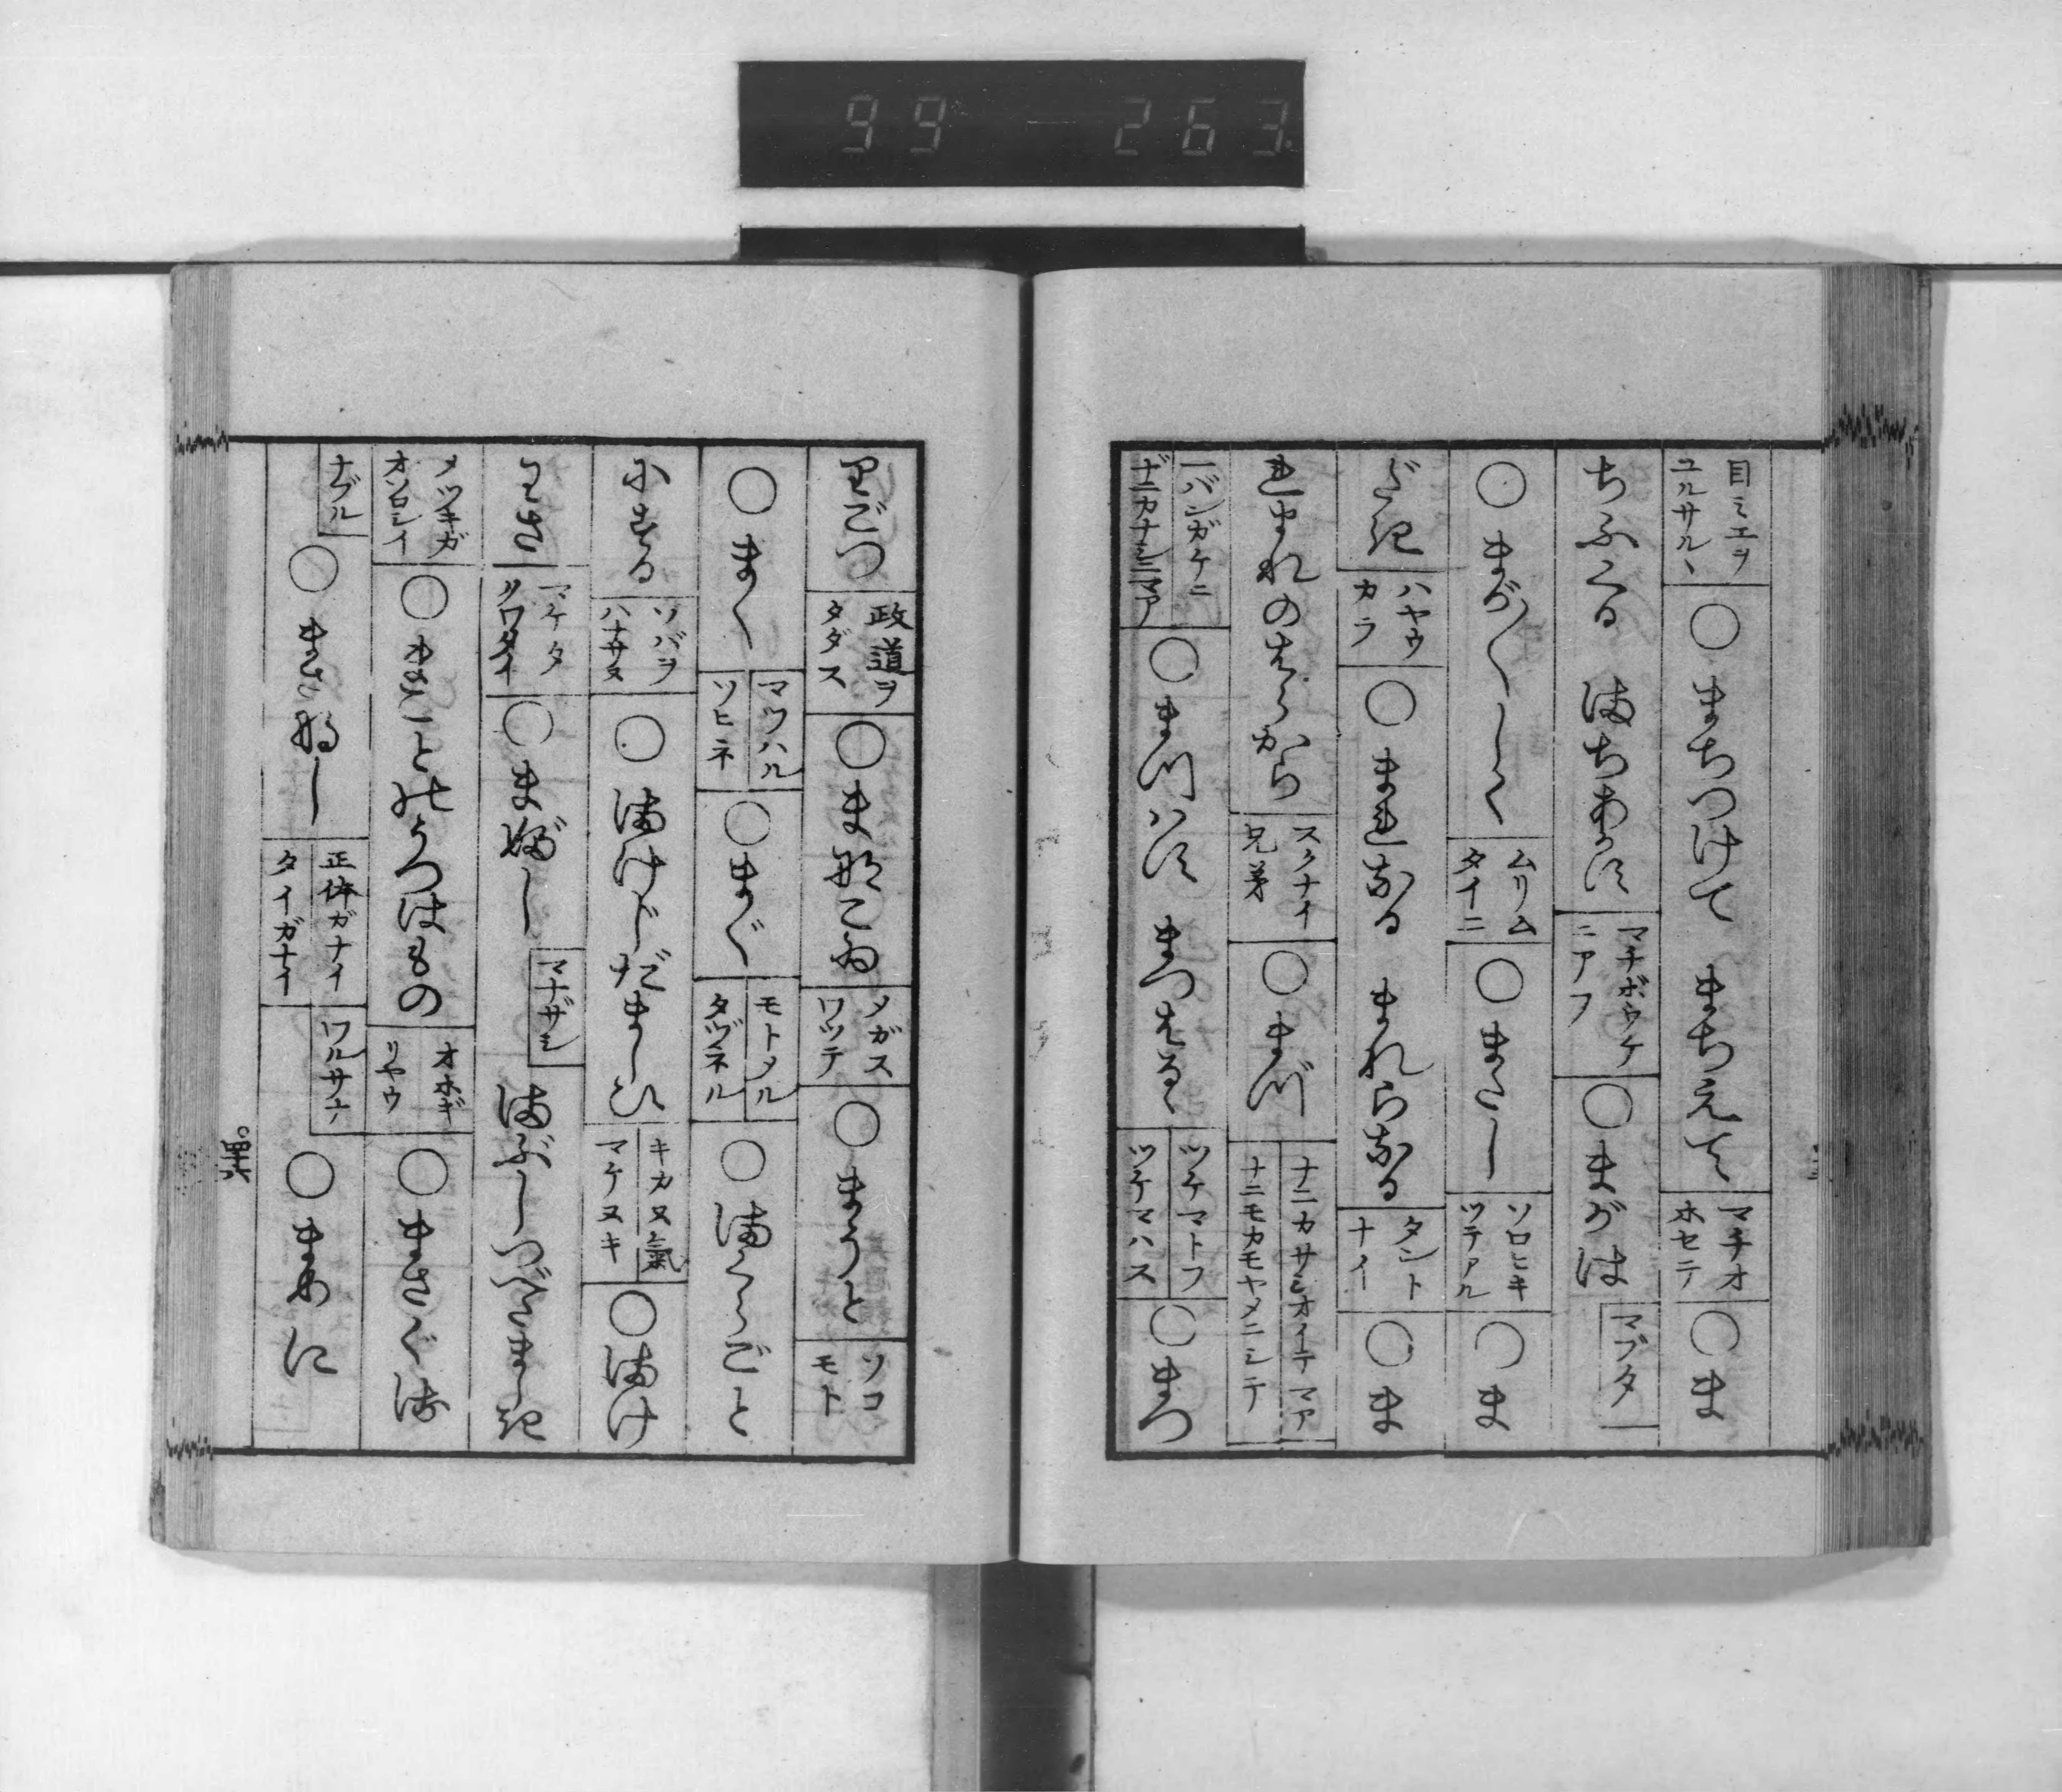 99 263
目ミエヲ
ユルサルヽ
○まちつけて まちえて
マチオ
ホセテ
○ま
ちふくる まちわたす
マチボウケ
ニアフ
○まがは
マブタ
○まが〱しく
ムリム
タイニ
○まさし
ソロヒキ
ツテアル
○ま
だき
ハヤウ
カラ
○まれなる まれらなる
タント
ナイ
○ま
れまれのはらから
スクナイ
兄弟
○まづ
ナニカサシオイテマア
ナニモカモヤメニシテ
一バンガケニ
ナニカナシニマア
○まつはす まつはるゝ
ツケマトフ
ツケマハス
○まつ
りごつ
政道ヲ
タダス
○まなこゐ
メガス
ワツテ
○まうと
ソコ
モト
○まく
マツハル
ソヒネ
○まぐ
モトメル
タヅネル
○まくらごと
にする
ソバヲ
ハナサヌ
○まけじだましひ
キカヌ氣
マケヌキ
○まけ
わざ
マケタ
クワタイ
○まぶし
マナザシ
まぶしつべたましき
メツキガ
オソロシイ
○まことのうつはもの
オホギ
リヤウ
○まさぐる
ナブル
○まさなし
正体ガナイ
タイガナイ
ワルサナ
○まめに
四十六